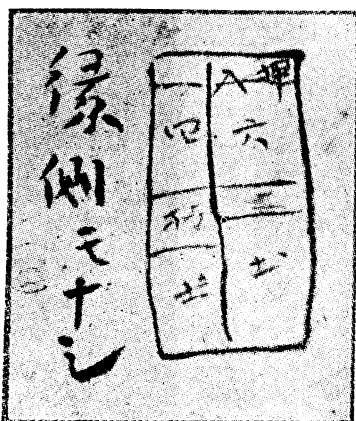 押入
六
三
土
四
縁側モナシ